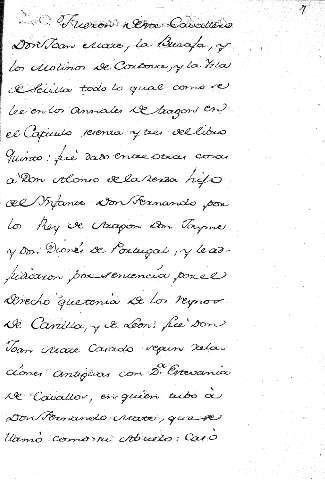 7
Fueron deste Cavallero
Don Joan Mare, la Burafa, y
los Molinos de Cordova, y la Isla
de Sevilla todo lo qual como se
lee en los Annales de Aragon en
el Capitulo setenta y tres del libro
Quinto: fué dado entre otras cosas
à Don Alonso de la zerda hijo
del Infante Don Fernando por
los Rey de Aragon Don Jayme
y Don Dionis de Portugal, y le ad-
judicaron por sentencia por el
Derecho que tenia de los Reynos
De Castilla, y de Leon: fué Don
Joan Mare Casado segun rela
ciones antiguas con Dª Estevania
de Cavallos, en quien tubo à
Don Fernando Mare, que se
llamó como su Abuelo: Casó